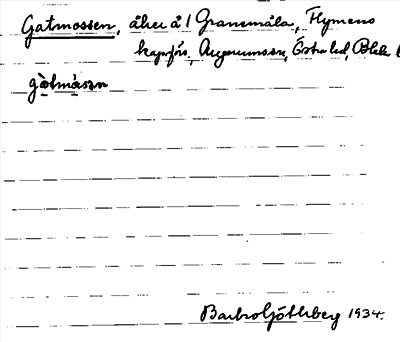 Gatmossen, åker å 1 Granemåla, Flymens
kapellfs, Augerums sn, Östra hd, Blek. l
gàtmåsən
Barbro Götlberg 1934.